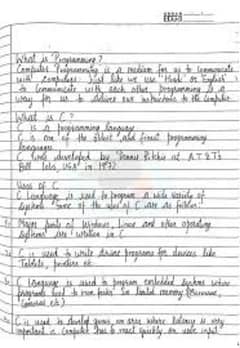 What is Programming?
Computer Programming is a medium for us to communicate
with computers. Just like we use 'Hindi' or 'English'
to communicate with each other, programming is a
way for us to deliver our instructions to the computer
What is C?
C is a programming language
C is one of the oldest and finest programming
languages
C was developed by Dennis Ritchie at AT&T's
Bell Labs, USA in 1972
Uses of C
C Language is used to program a wide variety of
systems. Some of the uses of C are as follows:
Major parts of Windows, Linux and other operating
systems are written in C
C is used to write driver programs for devices like
Tablets, printers etc.
C Language is used to program embedded systems where
programs need to run faster in limited memory
(Cameras etc)
C is used to develop games, an area where latency is very
important ie Computer has to react quickly on user input